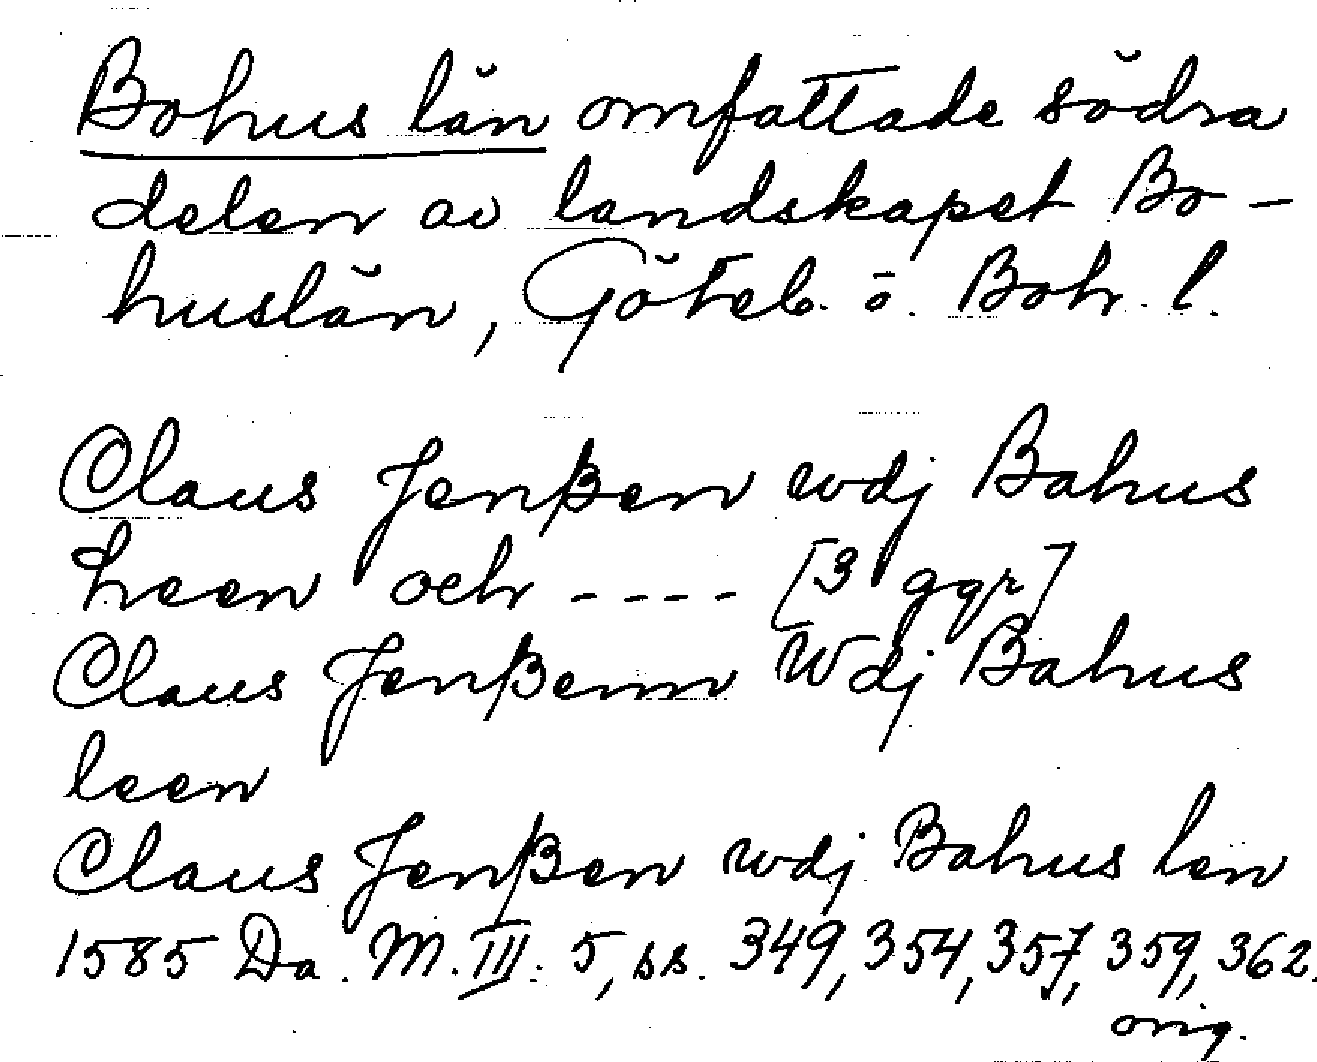 Bohus län omfattade södra
delen av landskapet Bo-
huslän, Göteb. o. Boh. l.
Claus Jenßen wdj Bahus
Leen och ---- [3 ggr]
Claus Jenßenn Wdj Bahus
leen
Claus Jenßen wdj Bahus len
1585 Da. M. III. 5, ss. 349, 354, 357, 359, 362.
orig.